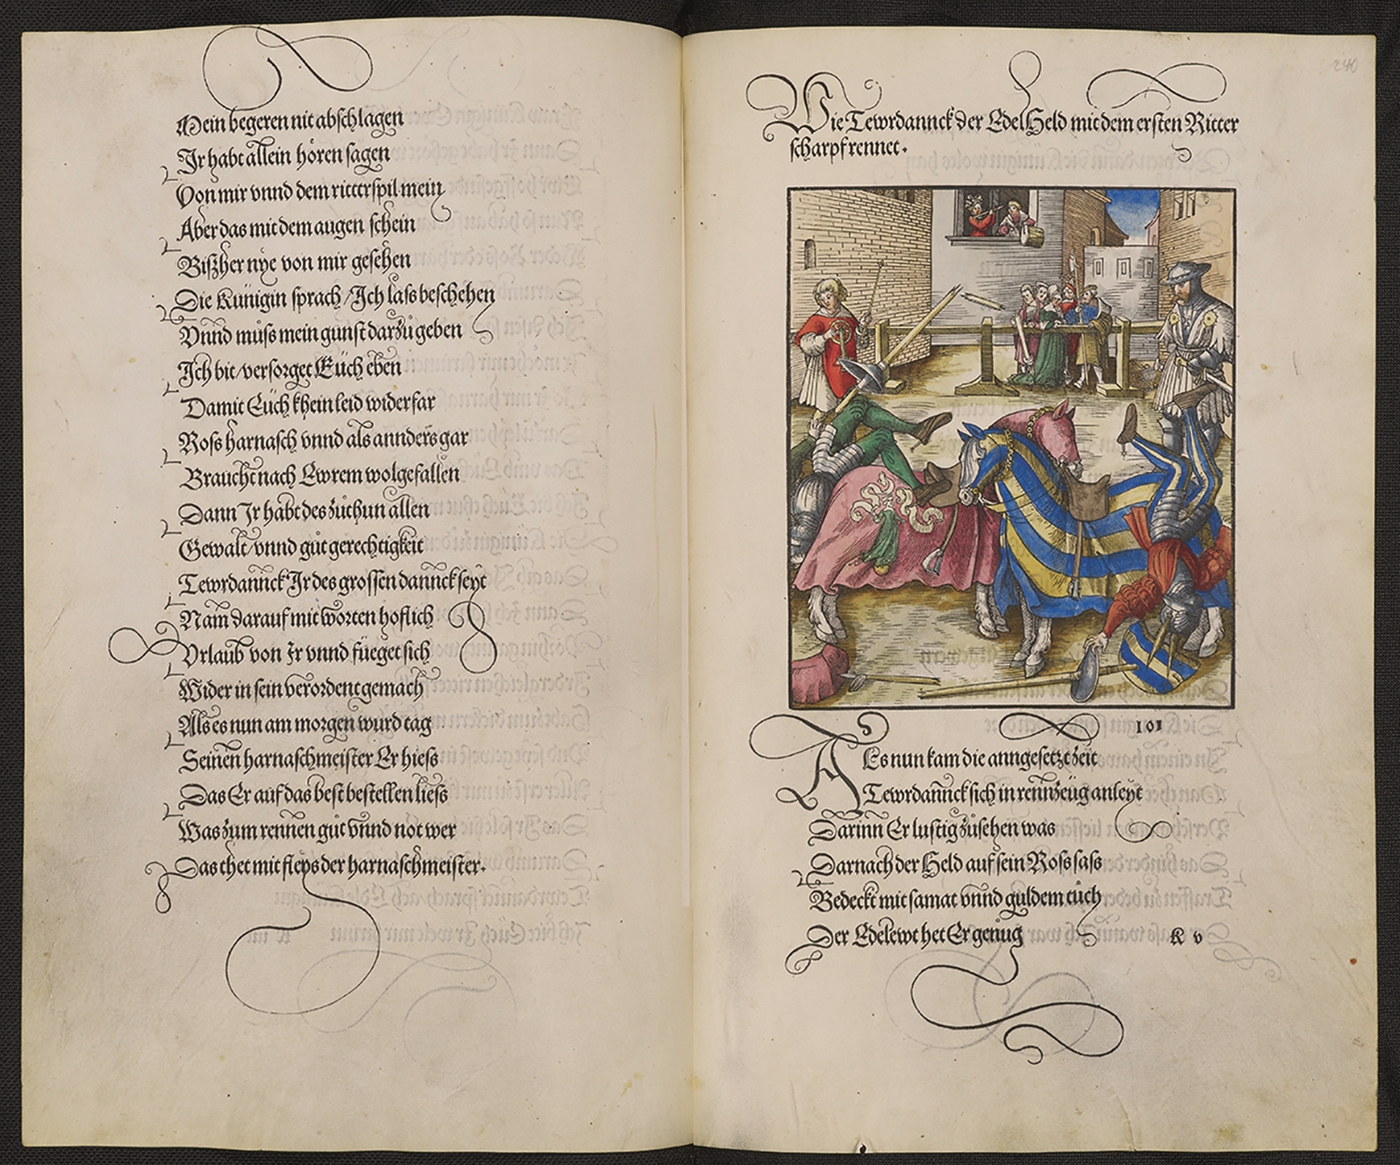 Mein begeren nit abschlagen
Ir habt allein hören sagen
Von mir vnnd dem ritterspil mein
Aber das mit dem augen schein
Biszher nye von mir gesehen
Die Künigin sprach / Ich lass beschehen
Vnnd muss mein gunst darzů geben
Ich bit / versorget Euch eben
Damit Euch khein leid widerfar
Ross harnasch vnnd als annders gar
Braucht nach Ewrem wolgefallen
Dann Ir habt des zůthun allen
Gewalt / vnnd gůt gerechtigkeit
Tewrdannck Ir des grossen dannck seyt
Nam darauf mit worten hoflich
Vrlaub von Ir vnnd füeget sich
Wider in sein verordent gemach
Als es nun am morgen wurd tag
Seinen harnaschmeister Er hiess
Das Er auf das best bestellen liess
Was zum rennen gůt vnnd not wer
Das thet mit fleys der harnaschmeister.
240
Wie Tewrdannck der Edel Held mit dem ersten Ritter
scharpf rennet.
101
Als es nun kam die anngesetzt zeit
Tewrdannck sich in rennzeug anleyt
Darinn Er lustig zůsehen was
Darnach der Held auf sein Ross sass
Bedeckt mit samat vnnd guldem tůch
Der Edelewt het Er genůg
K v